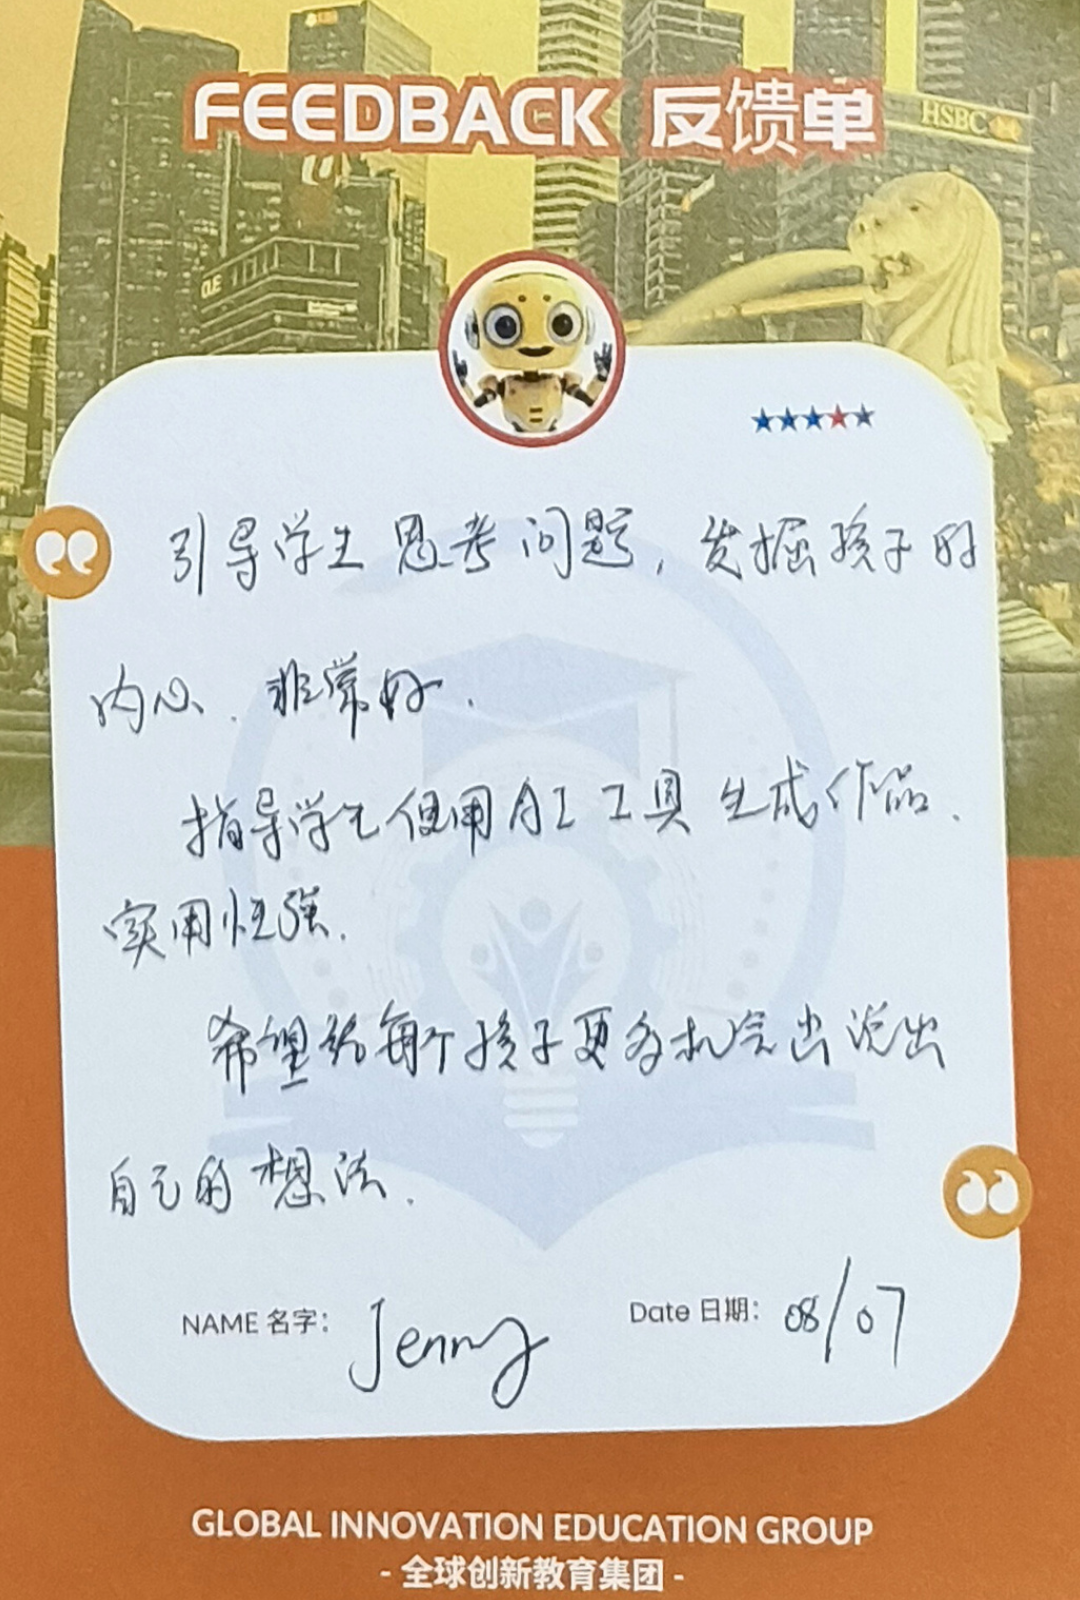 FEEDBACK 反馈单
HSBC
OUE
引导学生思考问题，发掘孩子的
内心．非常好．
指导学生使用AI工具生成作品．
实用性强．
希望给每个孩子更多机会出说出
自己的想法．
NAME 名字： Jenny
Date 日期： 08/07
GLOBAL INNOVATION EDUCATION GROUP
- 全球创新教育集团 -